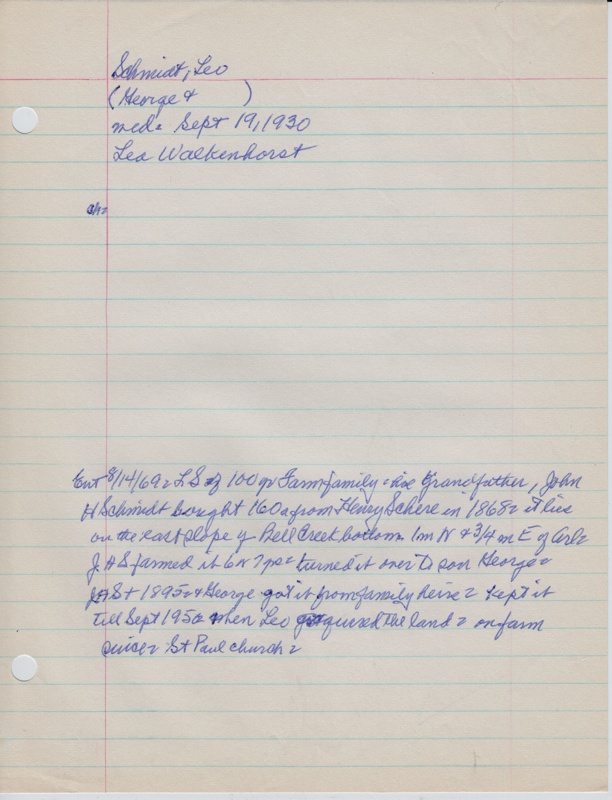 Schmidt, Leo
(George &      )
md= Sept 19, 1930
Lea Walkenhorst
ch=
Ent 8/14/69= L S of 100 yr Farm family = his Grandfather, John
H Schmidt bought 160 a from Henry Schere in 1868= it lies
on the east slope of Bell Creek bottom 1m N & 3/4 m E of Arl=
J.H S farmed it 6 or 7 yrs= turned it over to son George=
JHS + 1895= & George got it from family heirs= kept it
till Sept 1950 when Leo acquired the land= on farm
since= St Paul church=